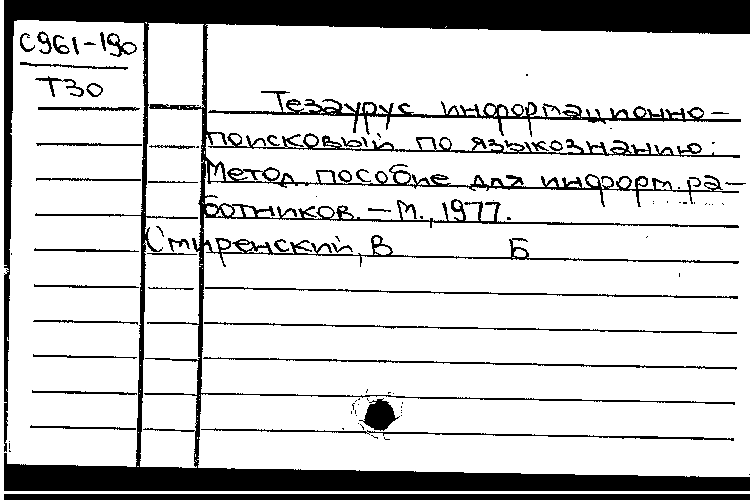 С961-190
Т30
Тезаурус информационно-
поисковый по языкознанию:
Метод. пособие для информ. ра-
ботников. - М., 1977.
Смиренский, В Б